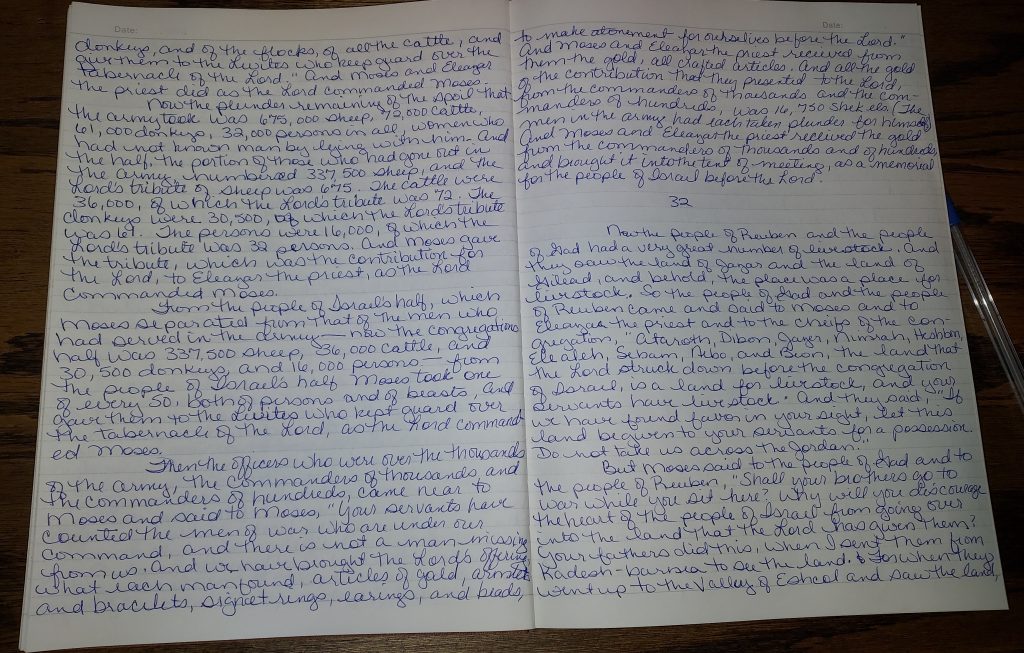 Date:
donkeys, and of the flocks, of all the cattle, and
give them to the Levites who keep guard over the
tabernacle of the Lord." And Moses and Eleazar
the priest did as the Lord commanded Moses.
Now the plunder remaining of the spoil that
the army took was 675,000 sheep, 72,000 cattle,
61,000 donkeys, 32,000 persons in all, women who
had not known man by lying with him. And
the half, the portion of those who had gone out in
the army, numbered 337,500 sheep, and the
Lord's tribute of sheep was 675. The cattle were
36,000, of which the Lord's tribute was 72. The
donkeys were 30,500, of which the Lord's tribute
was 61. The persons were 16,000, of which the
Lord's tribute was 32 persons. And Moses gave
the tribute, which was the contribution for
the Lord, to Eleazar the priest, as the Lord
commanded Moses.
From the people of Israel's half, which
Moses separated from that of the men who
had served in the army — now the congregations
half was 337,500 sheep, 36,000 cattle, and
30,500 donkeys, and 16,000 persons — from
the people of Israel's half Moses took one
of every 50, both of persons and of beasts, and
gave them to the Levites who kept guard over
the tabernacle of the Lord, as the Lord command-
ed Moses.
Then the officers who were over the thousands
of the army, the commanders of thousands and
the commanders of hundreds, came near to
Moses and said to Moses, "Your servants have
counted the men of war who are under our
command, and there is not a man missing
from us. And we have brought the Lord's offering
what each man found, articles of gold, armlets
and bracelets, signet rings, earings, and beads,
Date:
to make atonement for ourselves before the Lord."
And Moses and Eleazar the priest received from
them the gold, all crafted articles. And all the gold
of the contribution that they presented to the Lord,
from the commanders of thousands and the com-
manders of hundreds, was 16,750 shekels. (The
men in the army had each taken plunder for himself)
And Moses and Eleazar the priest received the gold
from the commanders of thousands and of hundreds,
and brought it into the tent of meeting, as a memorial
for the people of Israel before the Lord.
32
Now the people of Reuben and the people
of Gad had a very great number of livestock. And
they saw the land of Jazer and the land of
Gilead, and behold, the place was a place for
livestock. So the people of Gad and the people
of Reuben came and said to Moses and to
Eleazar the priest and to the cheifs of the con-
gregation, "Ataroth, Dibon, Jazer, Nimrah, Heshbon,
Elealeh, Sebam, Nebo, and Beon, the land that
the Lord struck down before the congregation
of Israel, is a land for livestock, and your
servants have livestock." And they said, "If
we have found favor in your sight, let this
land be given to your servants for a possession.
Do not take us across the Jordan."
But Moses said to the people of Gad and to
the people of Reuben, "Shall your brothers go to
war while you sit here? Why will you discourage
the heart of the people of Israel from going over
into the land that the Lord has given them?
Your fathers did this, when I sent them from
Kadesh-barnea to see the land. For when they
went up to the Valley of Eshcol and saw the land,